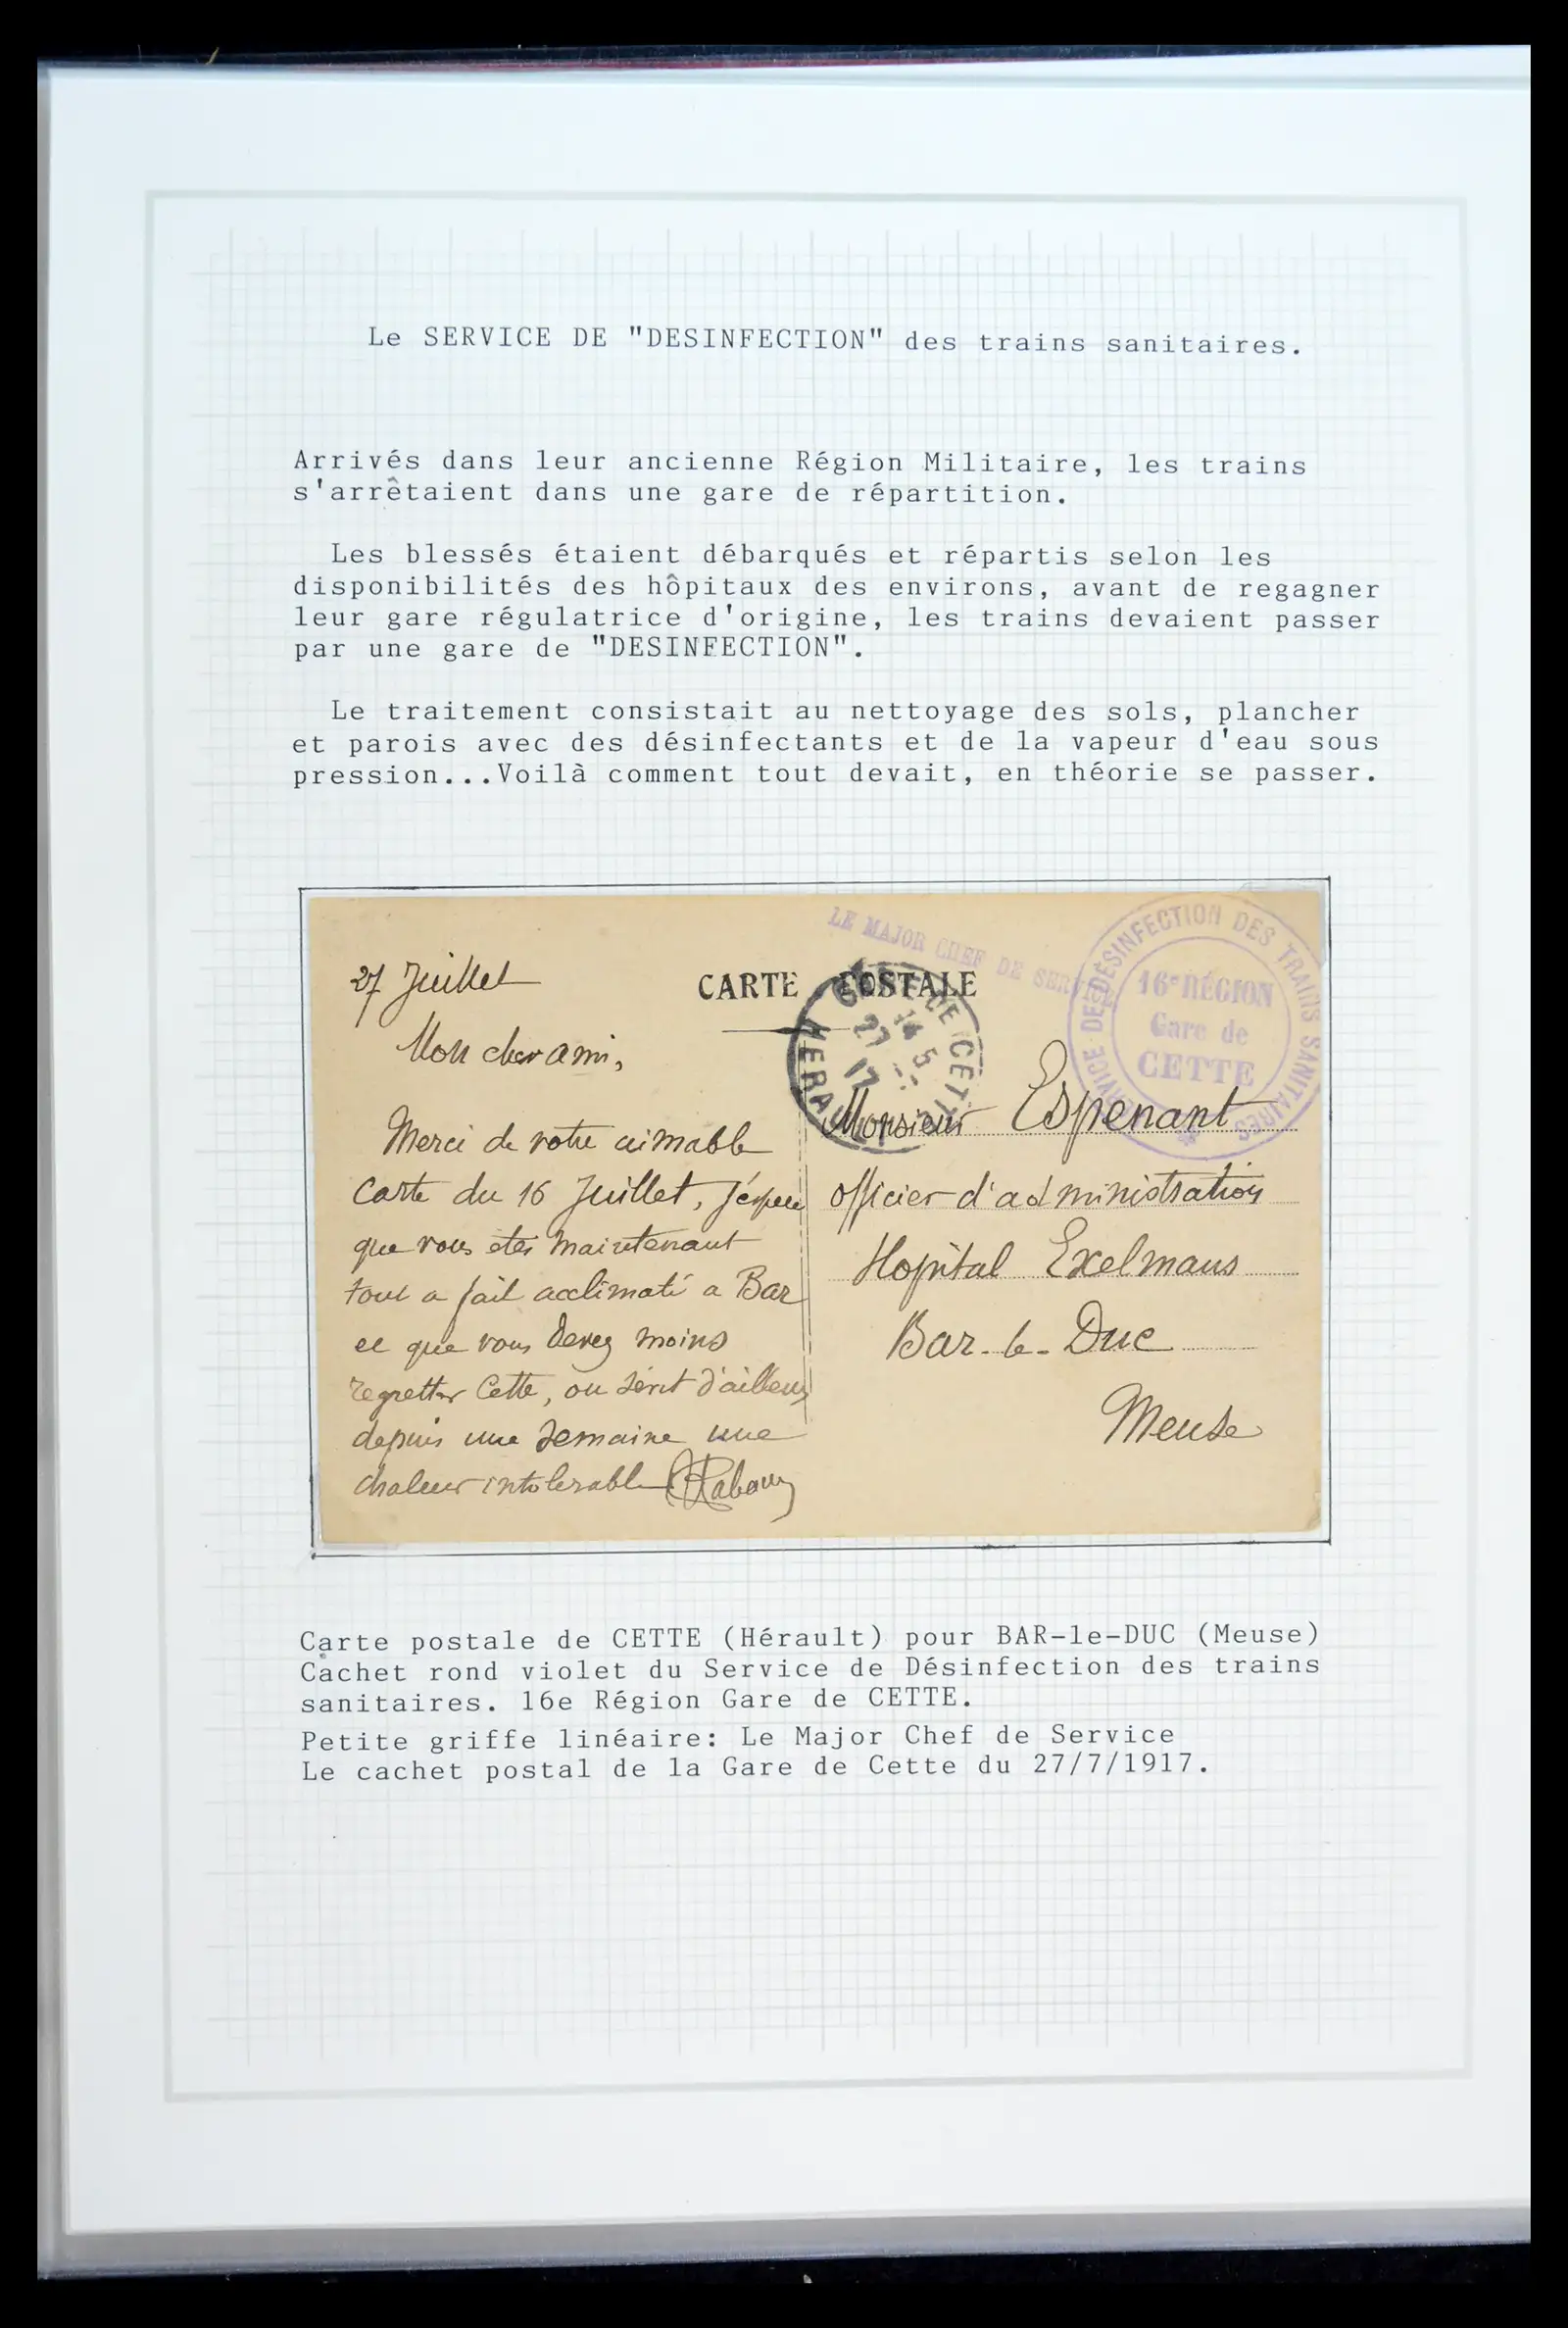 Le SERVICE DE "DESINFECTION" des trains sanitaires.
Arrivés dans leur ancienne Région Militaire, les trains
s'arrêtaient dans une gare de répartition.
Les blessés étaient débarqués et répartis selon les
disponibilités des hôpitaux des environs, avant de regagner
leur gare régulatrice d'origine, les trains devaient passer
par une gare de "DESINFECTION".
Le traitement consistait au nettoyage des sols, plancher
et parois avec des désinfectants et de la vapeur d'eau sous
pression...Voilà comment tout devait, en théorie se passer.
LE MAJOR CHEF DE SERVICE
SERVICE DE DÉSINFECTION DES TRAINS SANITAIRES
16e RÉGION
Gare de
CETTE
CARTE POSTALE
GARE DE CETTE
14 5
27
17
HERAULT
27 Juillet
Mon cher ami,
Merci de votre aimable
Carte du 16 Juillet, J'éspere
que vous etes maintenant
tout a fait acclimaté a Bar
et que vous devez moins
regretter Cette, ou sévit d'ailleurs
depuis une semaine une
chaleur intolerable
Monsieur Espenant
officier d'administration
Hopital Exelmans
Bar-le-Duc
Meuse
Carte postale de CETTE (Hérault) pour BAR-le-DUC (Meuse)
Cachet rond violet du Service de Désinfection des trains
sanitaires. 16e Région Gare de CETTE.
Petite griffe linéaire: Le Major Chef de Service
Le cachet postal de la Gare de Cette du 27/7/1917.